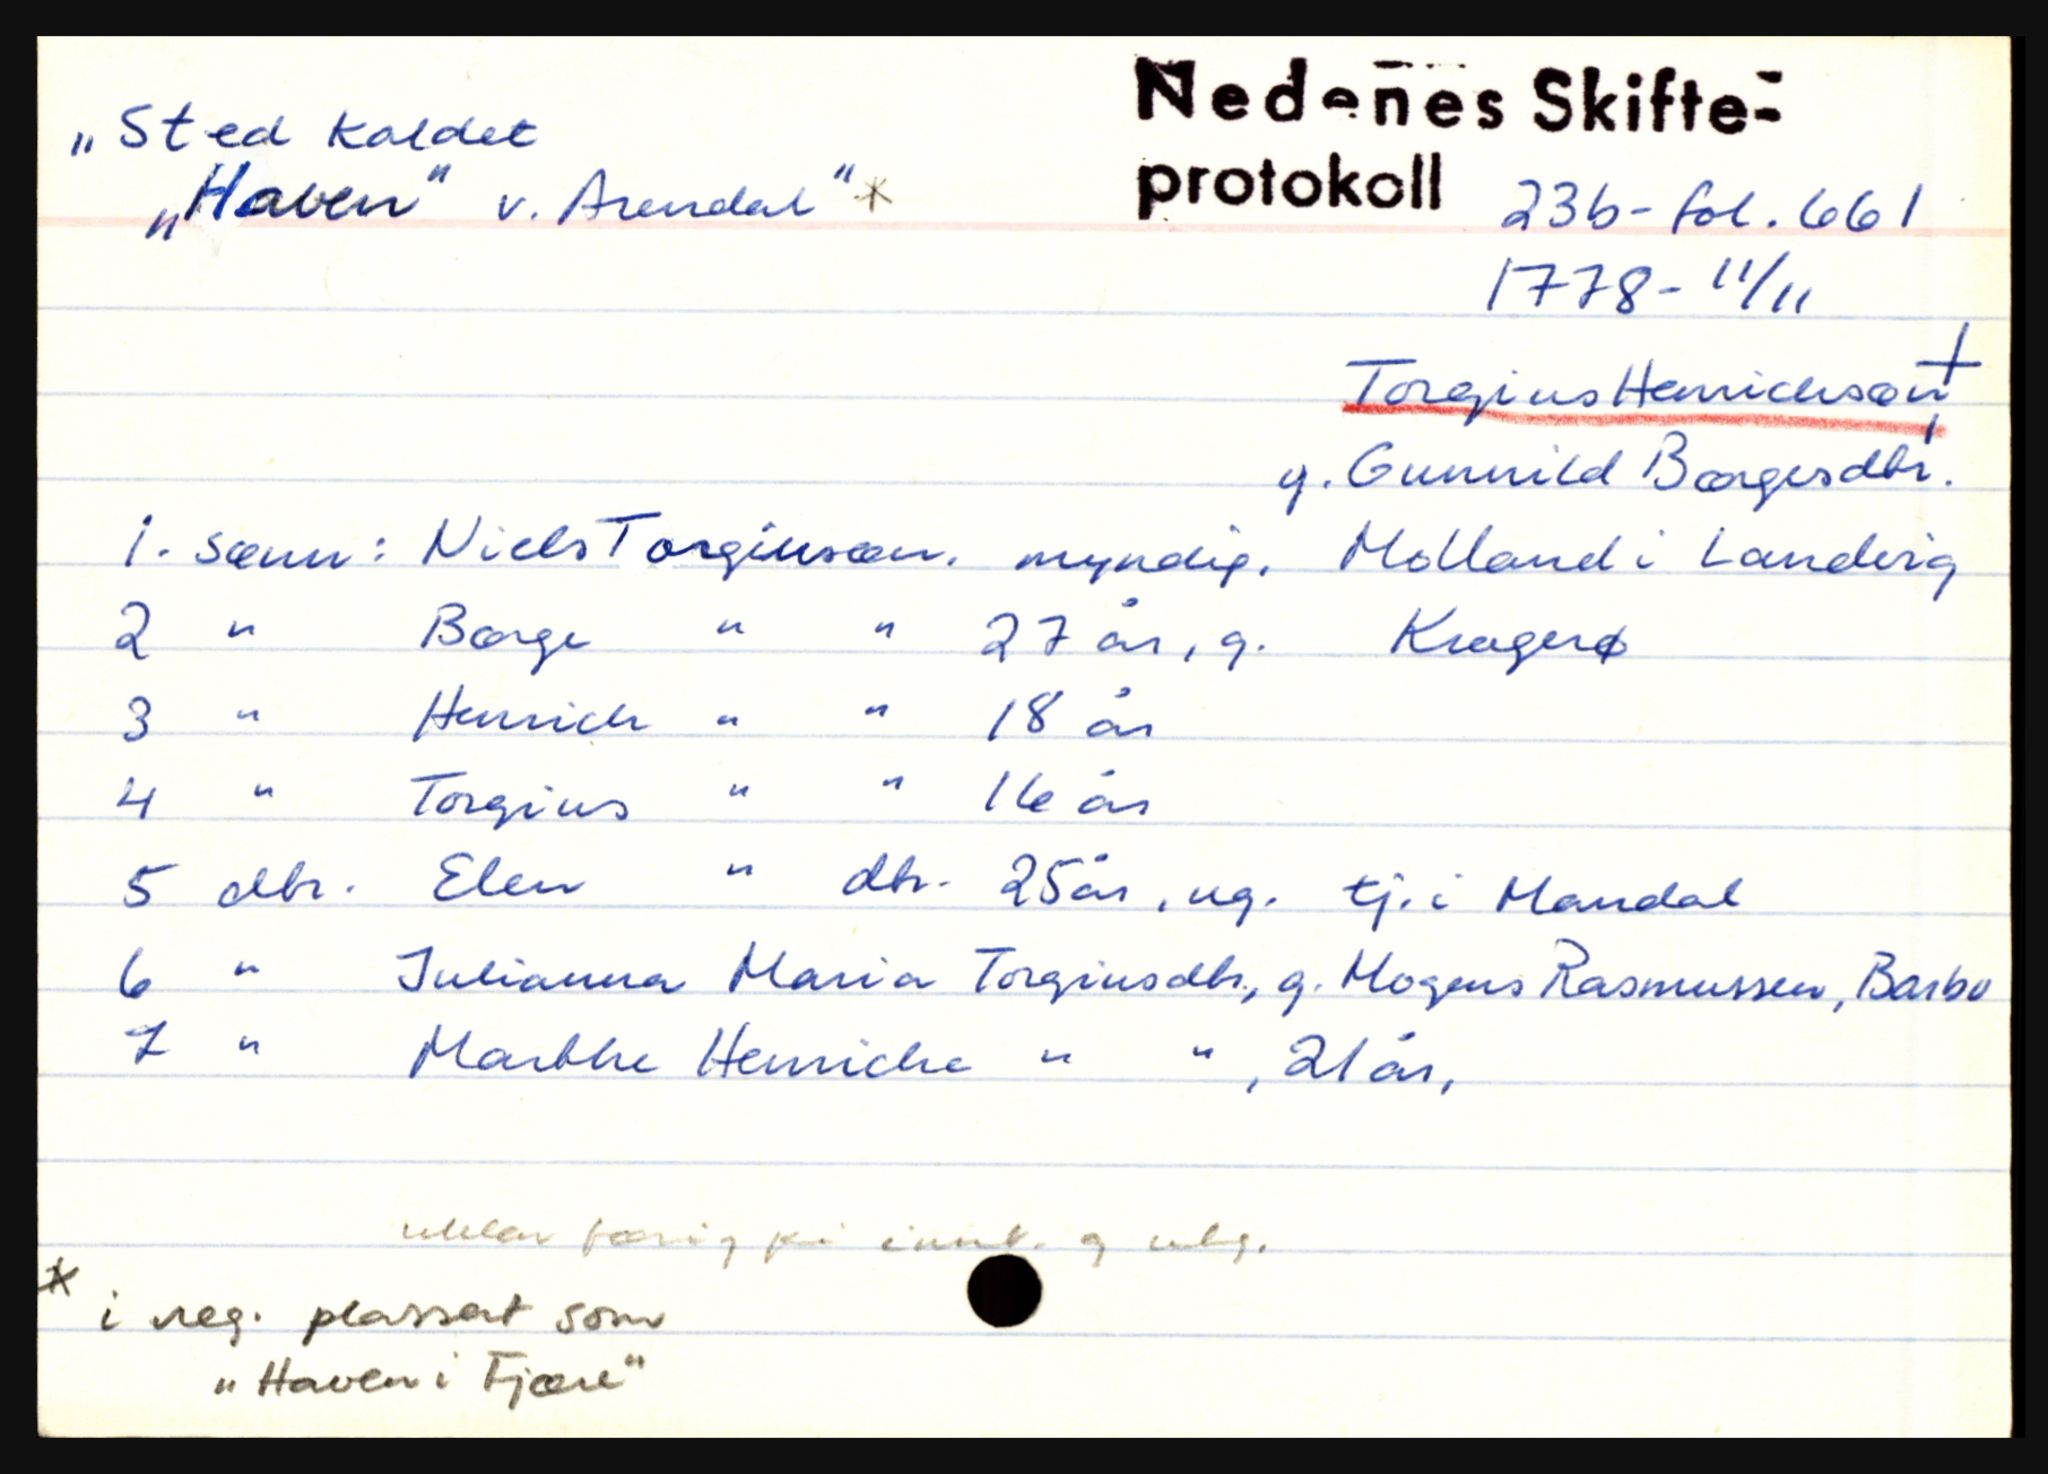 Nedenes Skifte-
protokoll
„Sted kaldet
„Haven" v. Arendal" *
23b - fol. 661
1778 - 11/11
Torgius Henrichsøn, +
g. Gunnild Børgesdtr.
1. sønn: Niels Torgiusøn. myndig. Molland i Landvig
2 " Børge " " 27 år, g. Kragerø
3 " Henrich " " 18 år
4 " Torgius " " 16 år
5 dtr. Elen " dtr. 25 år, ug. tj. i Mandal
6 " Julianna Maria Torgiusdtr., g. Mogens Rasmussen, Barbu
7 " Marthe Henriche " " , 21 år,
g
* i reg. plassert som
„Haven i Fjære"